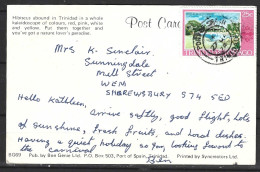 Hibiscus abound in Trinidad in a whole
kaleidoscope of colours, red, pink, white
and yellow. Put them together and
you've got a nature lover's paradise.
Post Card
Mrs K. Sinclair
Sunningdale
Mill Street
WEM
SHREWSBURY SY4 5ED
Hello Kathleen,
Arrive safely, good flight, lots
of sunshine, fresh fruits, and local dishes.
Having a quiet holiday so far, looking forward to
the carnival
Pub. by Bee Gene Ltd. P.O. Box 503, Port of Spain, Trinidad.
Printed by Syncreators Ltd.